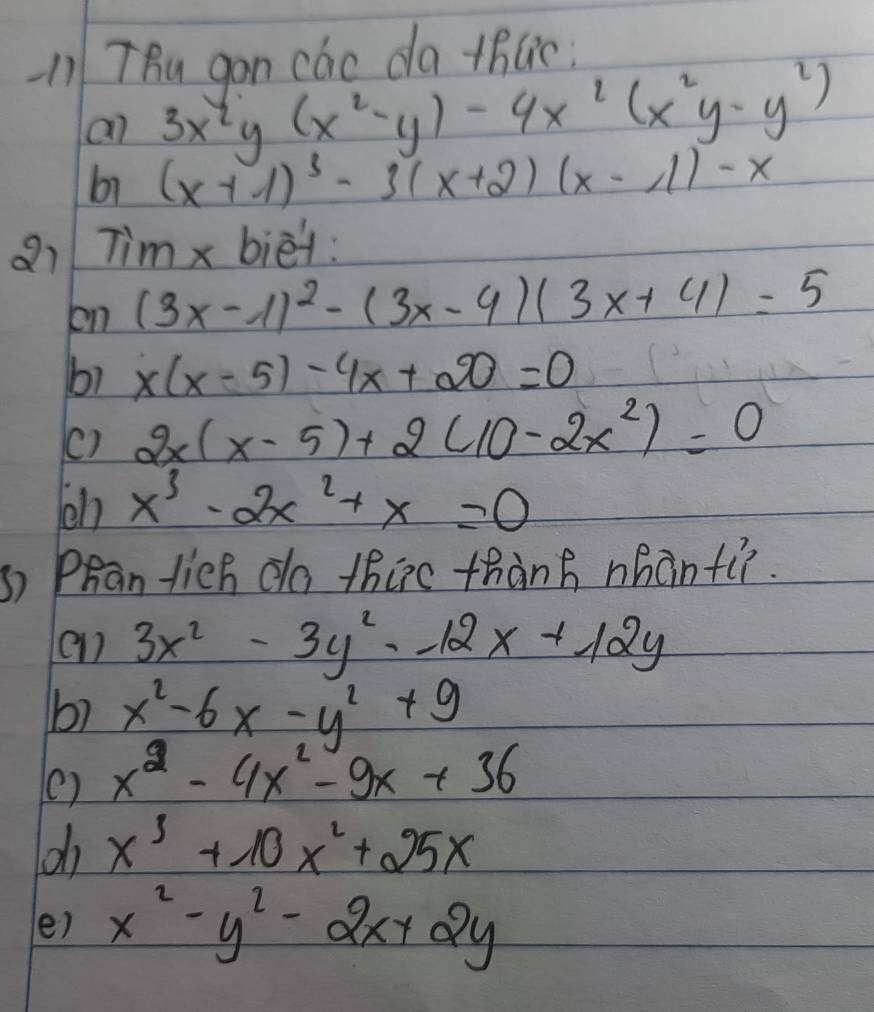 1) Thu gọn các đa thức:
a) 3x²y (x² - y) - 4x² (x²y - y²)
b) (x + 1)³ - 3(x+2) (x - 1) - x
2) Tìm x biết:
a) (3x - 1)² - (3x - 4)(3x + 4) = 5
b) x(x - 5) - 4x + 20 = 0
c) 2x(x - 5) + 2(10 - 2x²) = 0
d) x³ - 2x² + x = 0
3) Phân tích đa thức thành nhân tử.
a) 3x² - 3y² - 12x + 12y
b) x² - 6x - y² + 9
c) x³ - 4x² - 9x + 36
d) x³ + 10x² + 25x
e) x² - y² - 2x + 2y